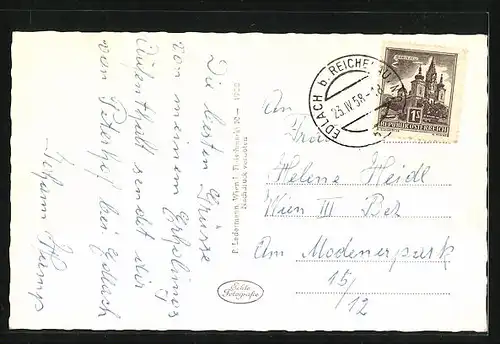 Die besten Grüsse
von meinem Erholungs
Aufenthalt sendet dir
von Peterhof bei Edlach
Johann
P. Ledermann, Wien I, Fleischmarkt 20 —
Nachdruck verboten
Echte
Fotografie
EDLACH b. REICHENAU
23.IV.58
REPUBLIK ÖSTERREICH
1S
An
Frau
Helene Heidl
Wien III Bez
Am Modenerpark
15/
12